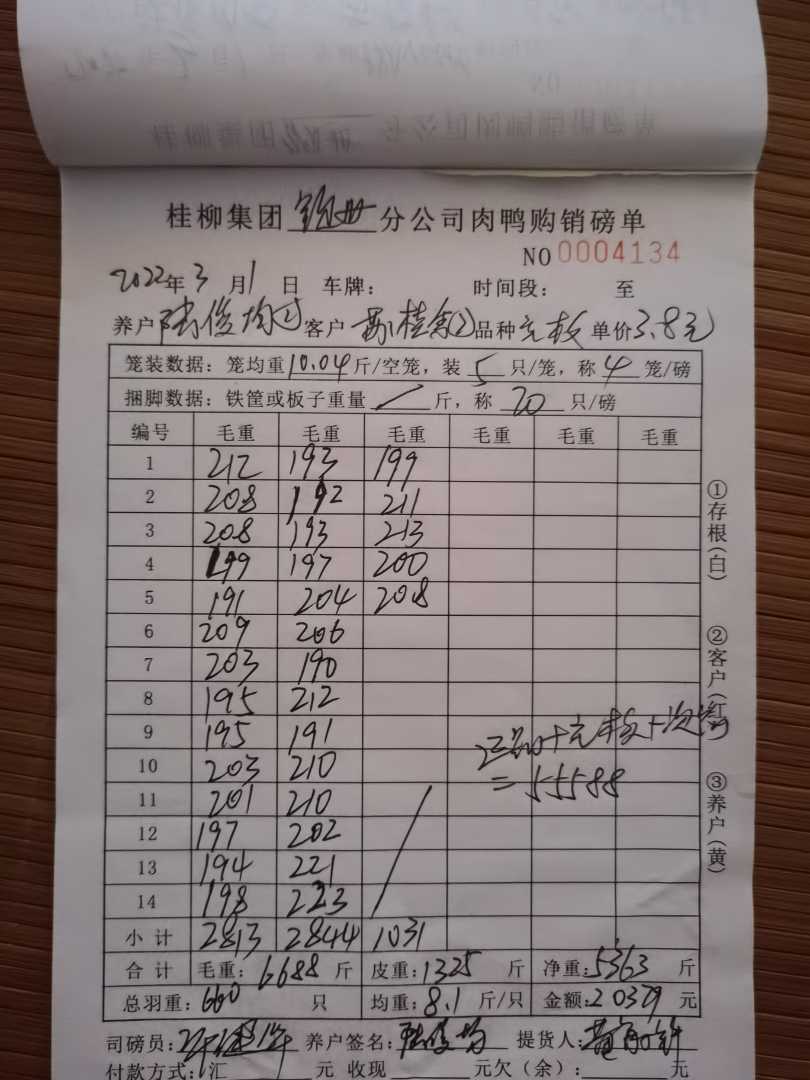 桂柳集团 分公司肉鸭购销磅单
NO 0004134
2022年3月1日 车牌： 时间段： 至
养户 陆俊均 客户 桂 ② 品种 单价3.8元
笼装数据：笼均重10.04斤/空笼，装5只/笼，称4笼/磅
捆脚数据：铁筐或板子重量/斤，称20只/磅
编号 毛重 毛重 毛重 毛重 毛重 毛重
1 212 193 199
2 208 192 211
3 208 193 213
4 199 197 200
5 191 204 208
6 209 206
7 203 190
8 195 212
9 195 191
10 203 210
11 201 210
12 197 202
13 194 221
14 198 223
小计 2813 2844 1031
合计 毛重：6688斤 皮重：1325斤 净重：5363斤
总羽重：660只 均重：8.1斤/只 金额：20379元
司磅员： 养户签名：陆俊均 提货人：
付款方式：汇 元 收现 元欠（余）： 元
=55588
①存根（白）
②客户（红）
③养户（黄）